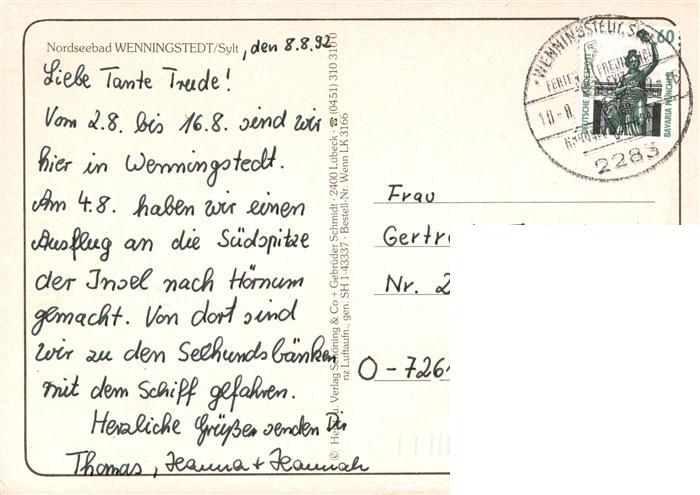 Nordseebad WENNINGSTEDT/Sylt, den 8.8.92
Liebe Tante Trude!
Vom 2.8. bis 16.8. sind wir
hier in Wenningstedt.
Am 4.8. haben wir einen
Ausflug an die Südspitze
der Insel nach Hörnum
gemacht. Von dort sind
wir zu den Seehundsbänken
mit dem Schiff gefahren.
Herzliche Grüße senden Dir
Thomas, Hanna + Hannah
Verlag Schöning & Co + Gebrüder Schmidt · 2400 Lübeck · ☎ (0451) 310 310
nz Luftaufn., gen. SH 1-43337 · Bestell-Nr. Wenn LK 3166
WENNINGSTEDT, SYLT
10.-8.
2283
60
DEUTSCHE BUNDESPOST
BAVARIA MÜNCHEN
Frau
Gertr
Nr. 2
O-7261